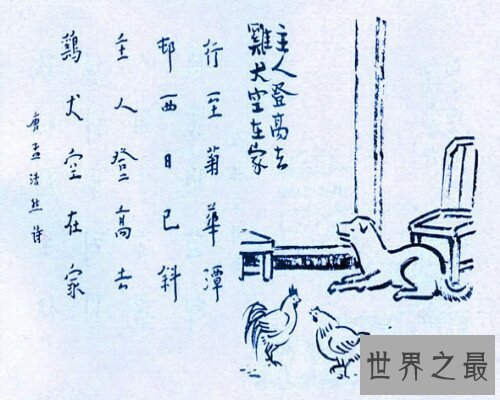 主人登高去
雞犬空在家
行至菊華潭
邨西日已斜
主人登高去
鷄犬空在家
唐孟浩然詩
世界之最